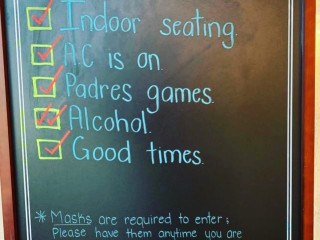 Indoor seating.
A.C is on.
Padres games.
Alcohol.
Good times.
* Masks are required to enter;
Please have them anytime you are